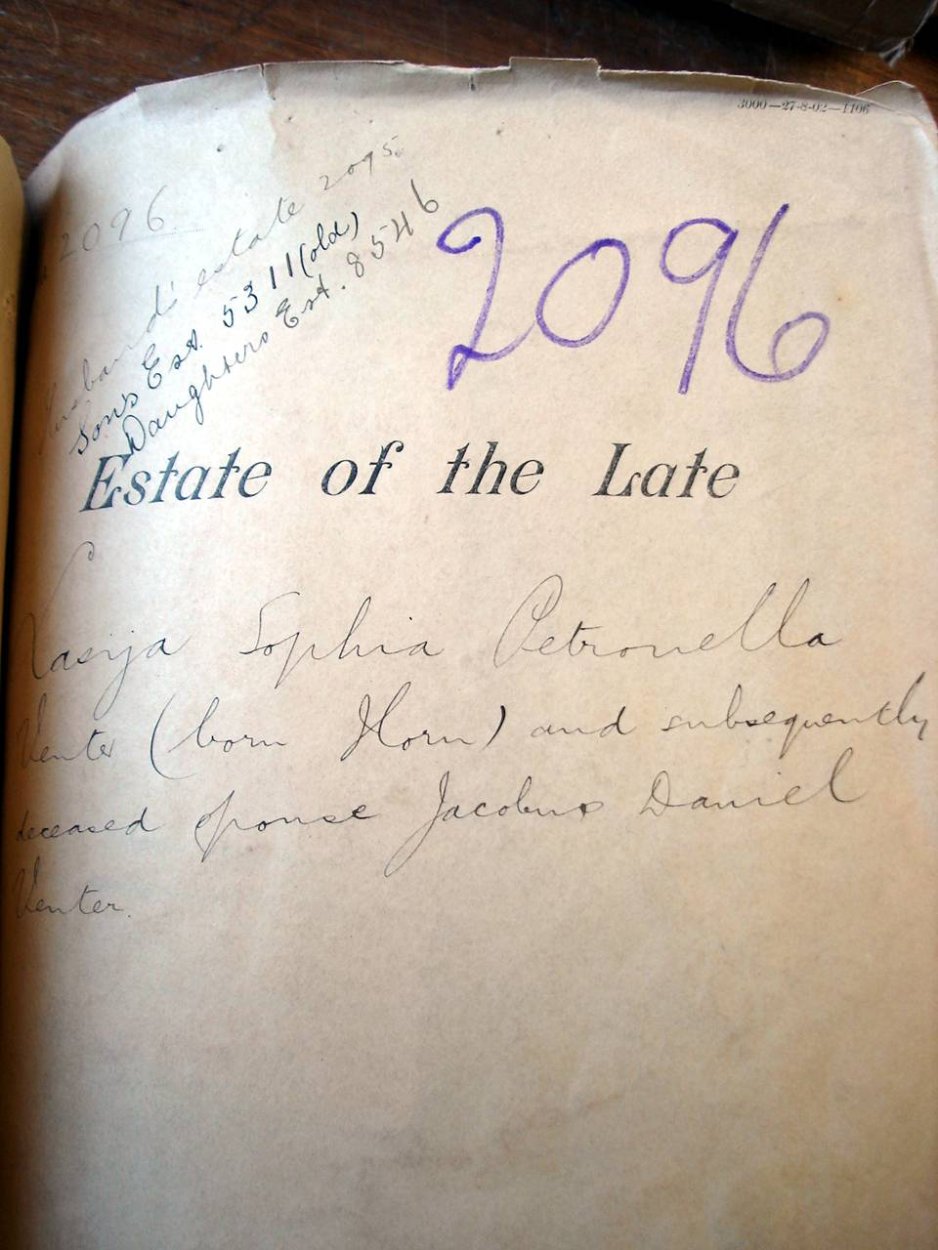 3000—27-8-02—1106
2096
Husband's estate 2095
Sons Est. 5311 (old)
Daughters Est. 8546
2096
Estate of the Late
Sophia Petronella
Venter (born Horn) and subsequently
deceased spouse Jacobus Daniel
Venter.